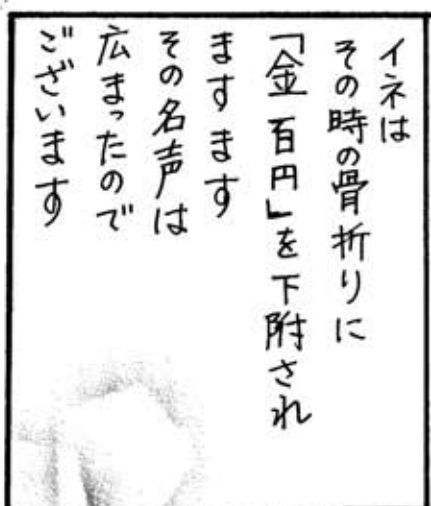 イネは
その時の骨折りに
「金百円」を下附され
ますます
その名声は
広まったので
ございます